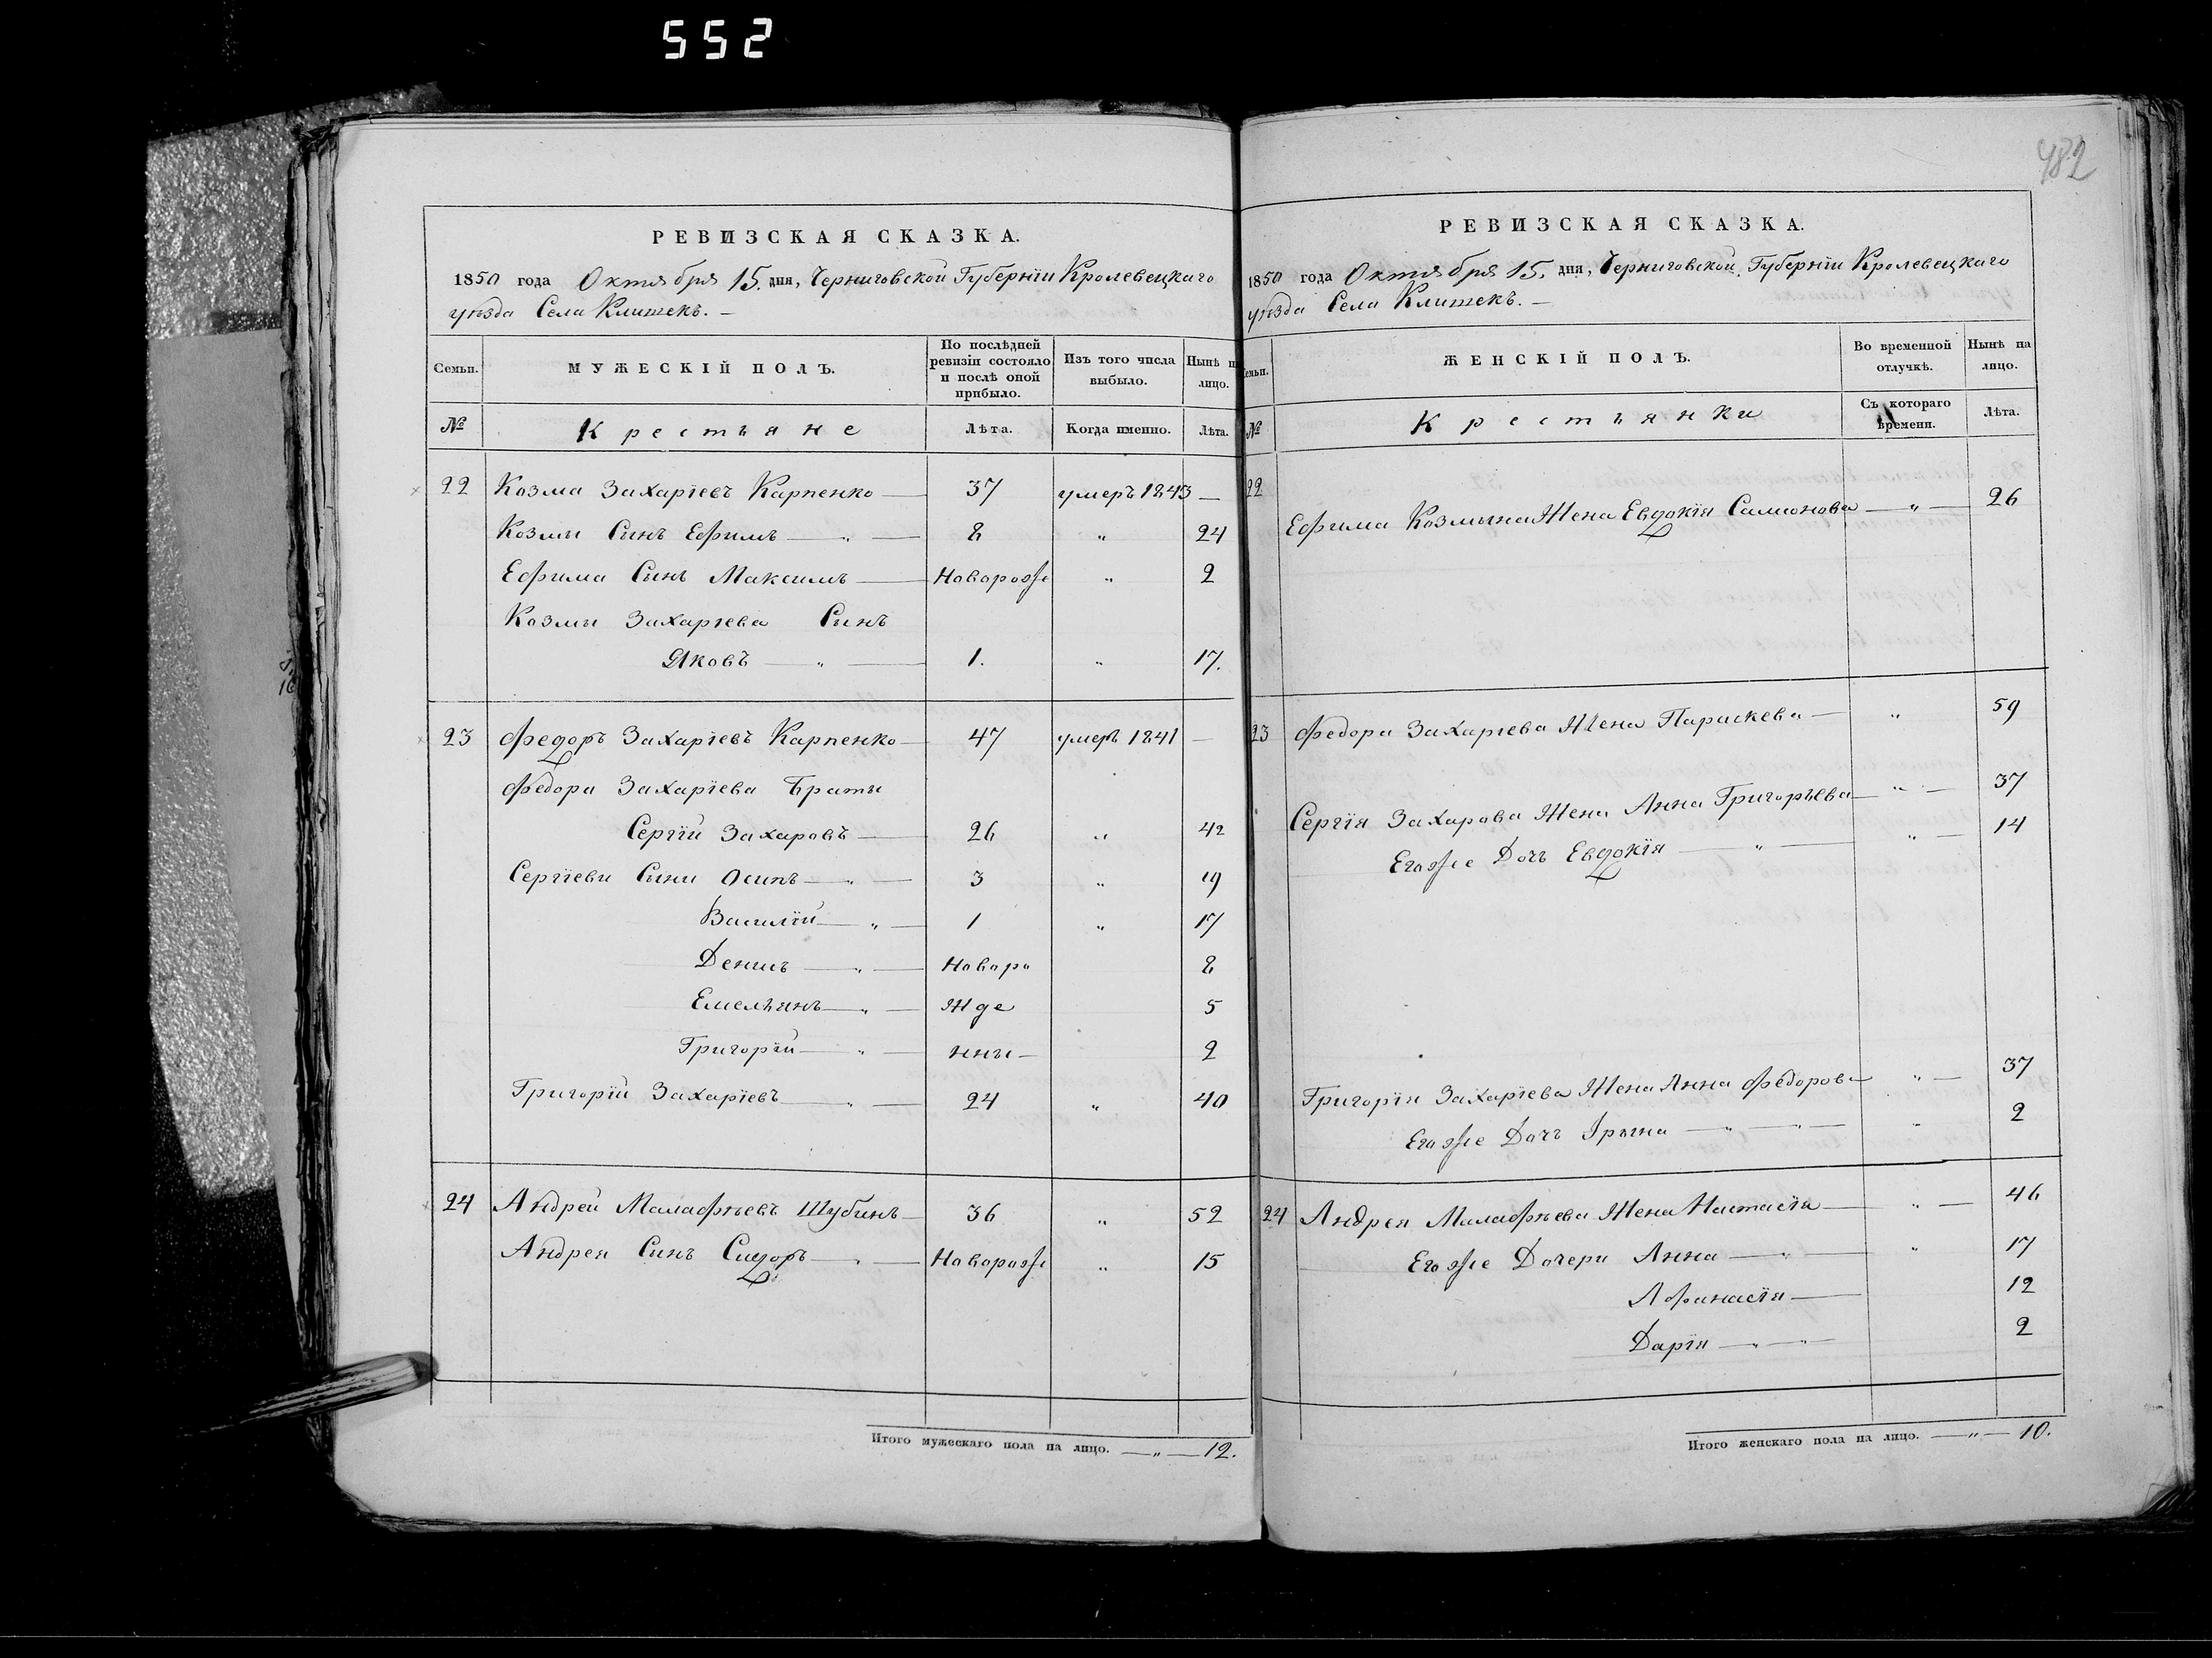 552
482
РЕВИЗСКАЯ СКАЗКА.
1850 года Октября 15. дня, Черниговской Губернїи Кролевецкаго
уѣзда Села Клишекъ. —
Семьи. МУЖЕСКІЙ ПОЛЪ. По послѣдней ревизіи состояло и послѣ оной прибыло. Изъ того числа выбыло. Нынѣ на лицо.
№ Крестьяне Лѣта. Когда именно. Лѣта.
22 Козма Захарїевъ Карпенко — 37 умеръ 1843 —
Козмы Сынъ Ефимъ — „ — 8 „ 24
Ефима Сынъ Максимъ — Новорож „ 2
Козмы Захарїева Сынъ
Яковъ — „ — 1. „ 17.
23 Федоръ Захарїевъ Карпенко — 47 умеръ 1841 —
Федора Захарїева Браты
Сергїй Захаровъ — 26 „ 42
Сергїеви Сыны Осипъ — „ — 3 „ 19
Василїй — „ — 1 „ 17
Денисъ — „ — Новоро 8
Емельянъ — „ — жде 5
Григорїй — „ — нны — 2
Григорїй Захарїевъ — „ — 24 „ 40
24 Андрей Малафѣевъ Шубинъ — 36 „ 52
Андрея Сынъ Сидоръ — „ — Новорож „ 15
Итого мужескаго пола на лицо. — „ — 12.
РЕВИЗСКАЯ СКАЗКА.
1850 года Октября 15. дня, Черниговской, Губернїи Кролевецкаго
уѣзда Села Клишекъ. —
Семьи. ЖЕНСКІЙ ПОЛЪ. Во временной отлучкѣ. Нынѣ на лицо.
№ Крестьянки Съ котораго времени. Лѣта.
22 Ефима Козмына Жена Евдокїя Самионова — „ — 26
23 Федора Захарїева Жена Параскева — „ 59
Сергїя Захарова Жена Анна Григорьева — „ — 37
Егоже Дочь Евдокїя — „ — „ — 14
Григорїя Захарїева Жена Анна Федорова — „ — 37
Егоже Дочь Ірына — „ — „ — „ 2
24 Андрея Малафѣева Жена Настасїя — „ — 46
Егоже Дочери Анна — „ — „ 17
Афанасїя — 12
Дарїя — „ — „ — 2
Итого женскаго пола на лицо. — „ — 10.